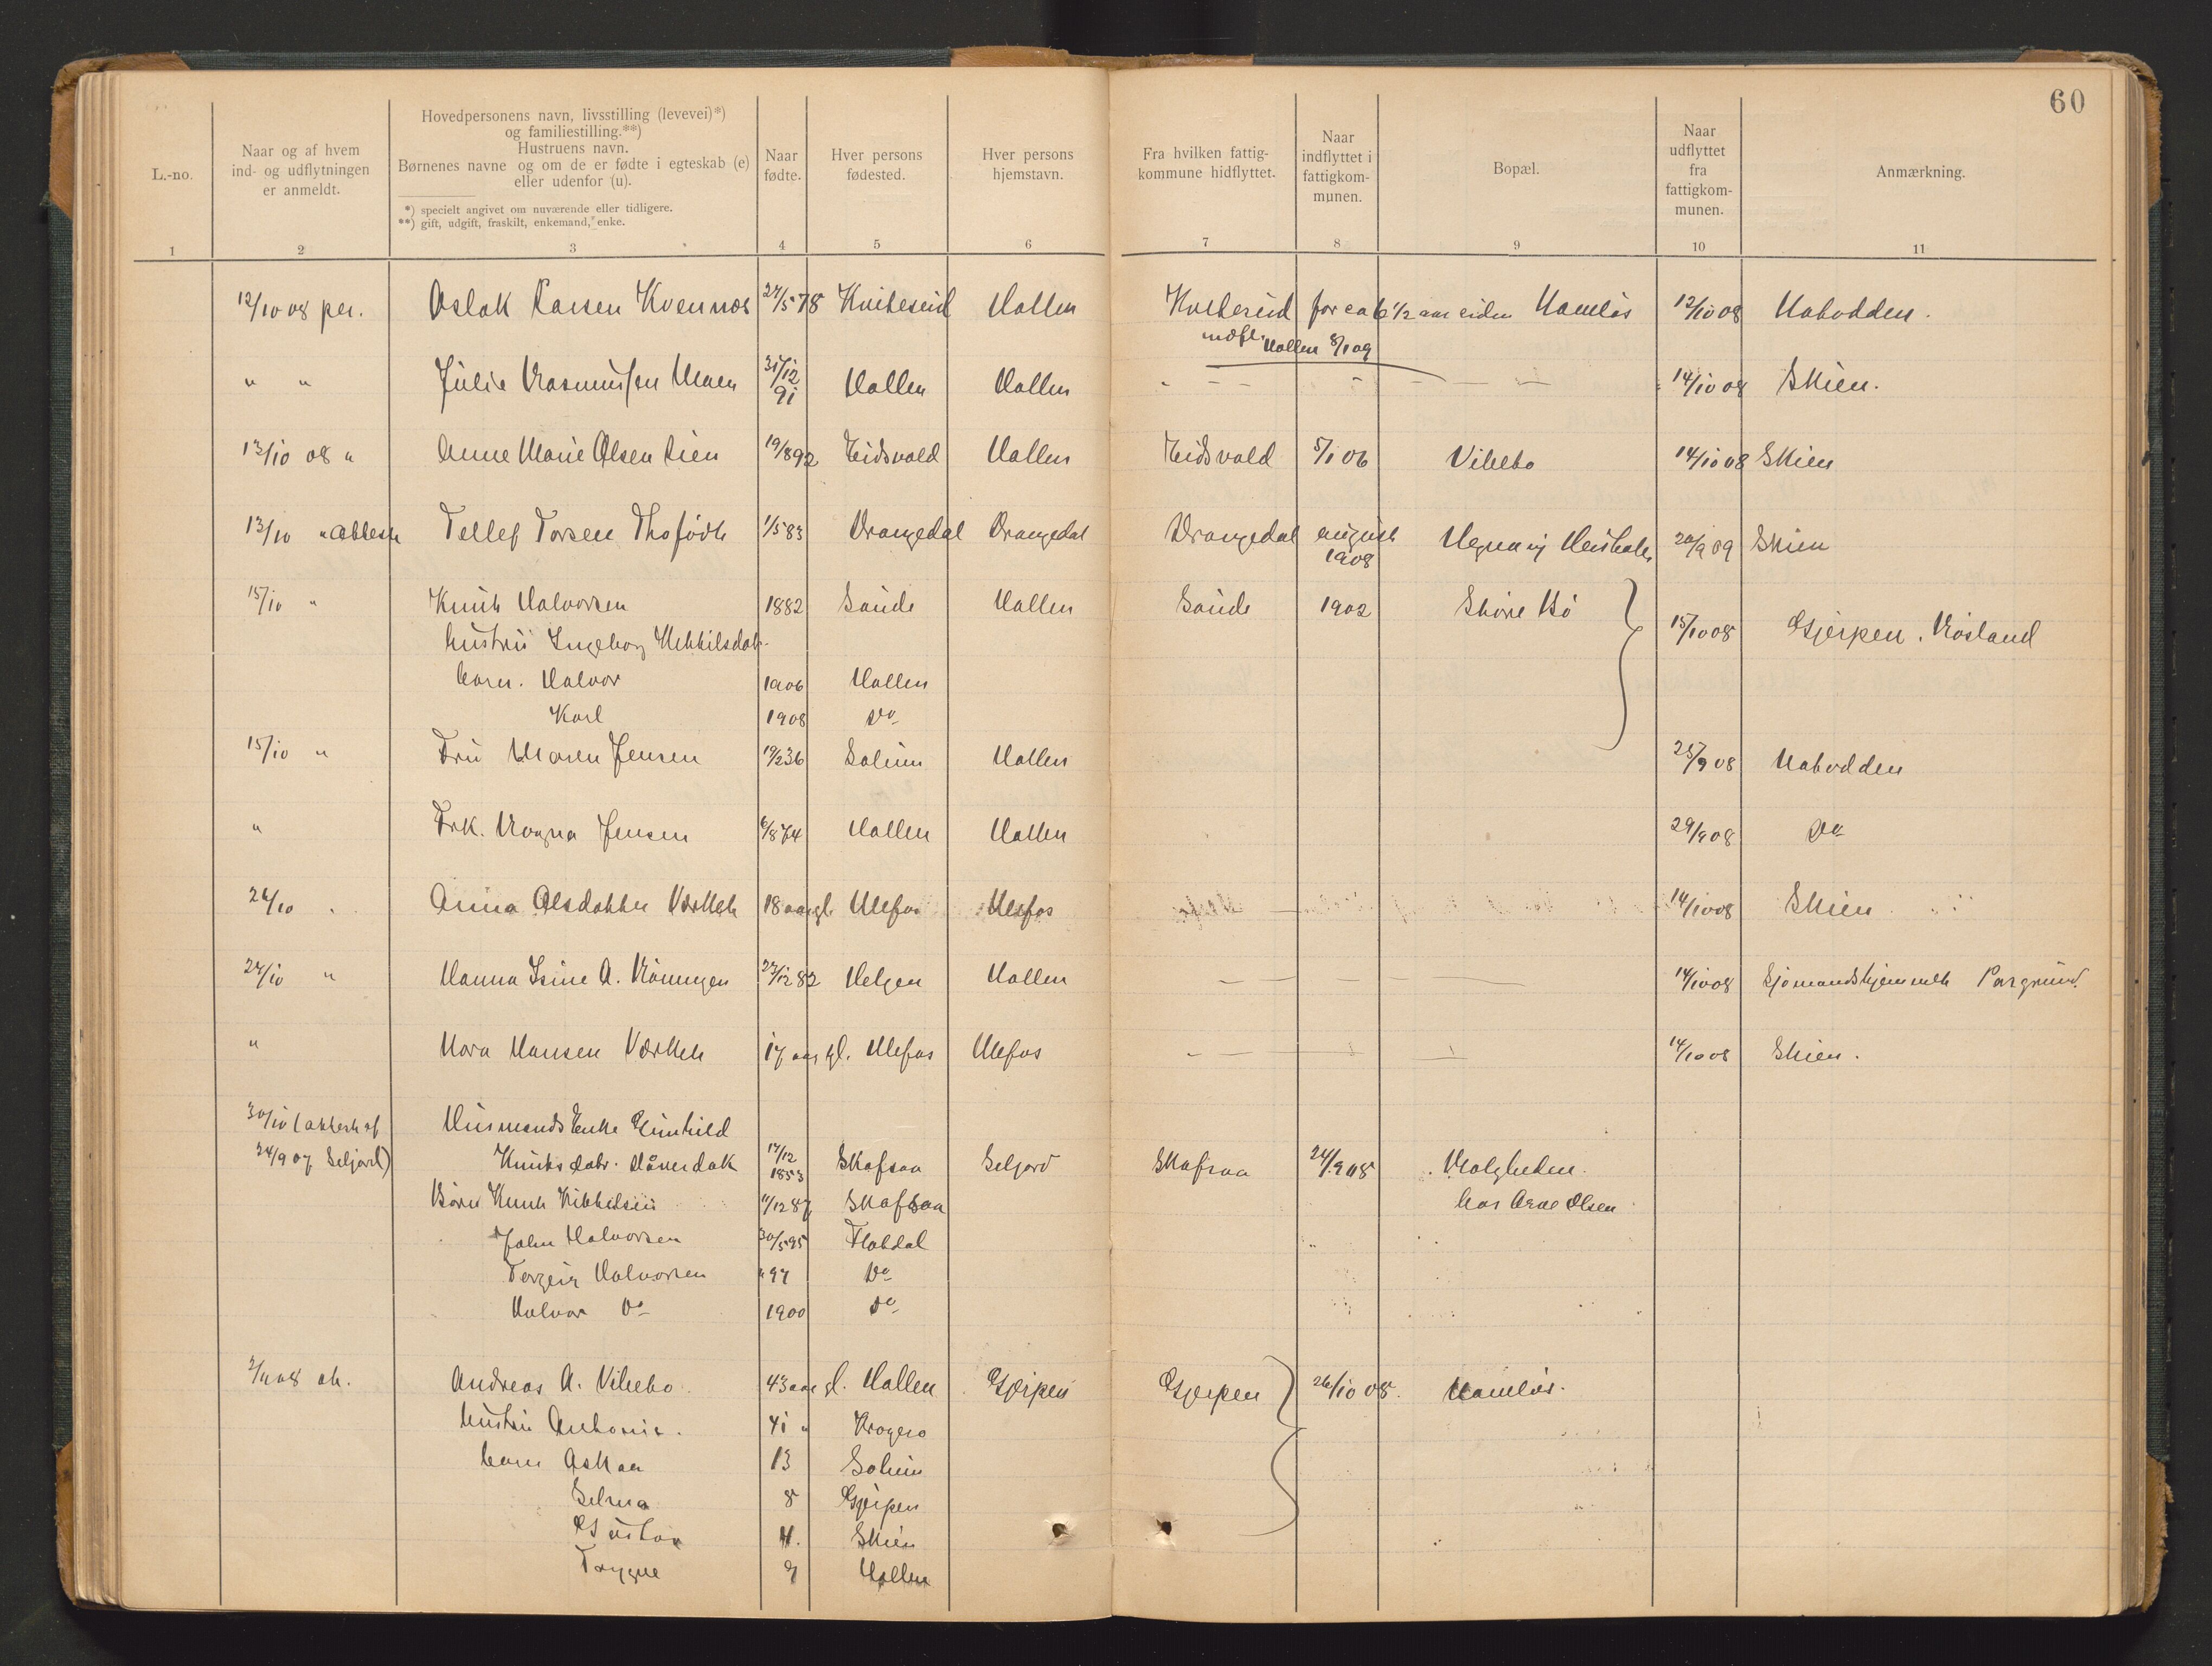 60
L.-no.
Naar og af hvem
ind- og udflytningen
er anmeldt.
Hovedpersonens navn, livsstilling (levevei)*)
og familiestilling.**)
Hustruens navn.
Børnenes navne og om de er fødte i egteskab (e)
eller udenfor (u).
*) specielt angivet om nuværende eller tidligere.
**) gift, udgift, fraskilt, enkemand, enke.
Naar
fødte.
Hver persons
fødested.
Hver persons
hjemstavn.
Fra hvilken fattig-
kommune hidflyttet.
Naar
indflyttet i
fattigkom-
munen.
Bopæl.
Naar
udflyttet
fra
fattigkom-
munen.
Anmærkning.
1 2 3 4 5 6 7 8 9 10 11
12/10 08 per. Aslak Larsen 27/5 78 Kviteseid Hollen Kviteseid for ca 6 1/2 aar siden 12/10 08 Notodden.
indfl. Hollen 8/1 09
" " Julie Rasmussen Moen 31/12 91 Hollen Hollen 14/10 08 Skien.
13/10 08 " Anne Marie Olsen Lien 19/8 92 Eidsvold Hollen Eidsvold 5/1 06 Vibeto 14/10 08 Skien
13/10 " attest Tellef Torsen 1/5 83 Drangedal Drangedal Drangedal august 1908 20/9 09 Skien
15/10 " Knut Halvorsen 1882 Saude Hollen Saude 1902 15/10 08 Gjerpen.
hustru Ingeborg
barn. Halvor 1906 Hollen
Karl 1908 Do
15/10 " Fru Maren Jensen 19/2 36 Solum Hollen 25/9 08 Notodden
" Frk. Magna Jensen 6/8 74 Hollen Hollen 29/9 08 Do
24/10 Anna Olsdatter Verket 18 aar gl. Ulefos Ulefos 14/10 08 Skien
24/10 " Hanna Isine A. 27/12 82 Helgen Hollen 14/10 08 Sjømandshjemmet Porsgrund.
" Nora Hansen Værket 17 aar gl. Ulefos Ulefos 14/10 08 Skien.
30/10 (attest af Husmands Enke Gunhild
24/9 07 Seljord) Knutsdatr. 17/12 1853 Skafsaa Seljord Skafsaa 24/9 08
Børn Knut Kittilsen 11/12 87 Skafsaa hos Arne Olsen
John Halvorsen 30/5 95 Flatdal
Torgeir Halvorsen " 97 Do
Halvor Do 1900 Do
2/11 08 at. Andreas A. Vibeto 43 aar gl. Hollen Gjerpen Gjerpen 26/10 08.
hustru Antonie. 41 " Kragerø
barn Oskar 13 Solum
Selma 8 Gjerpen
Gustav 4. Skien
Trygve Hollen